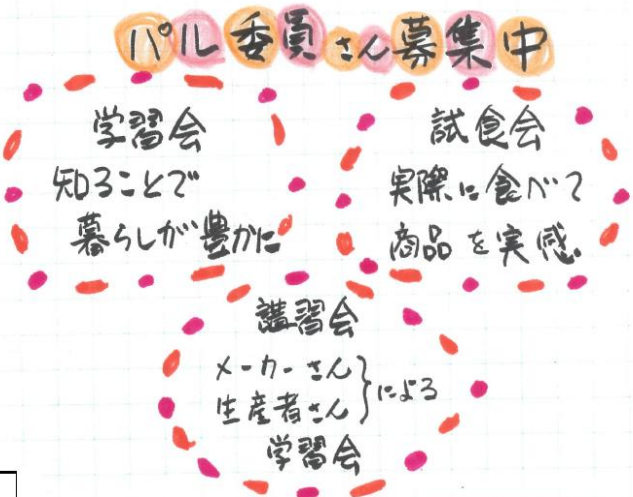 パル委員さん募集中
学習会
知ることで
暮らしが豊かに
試食会
実際に食べて
商品を実感。
講習会
メーカーさん
生産者さん
による
学習会